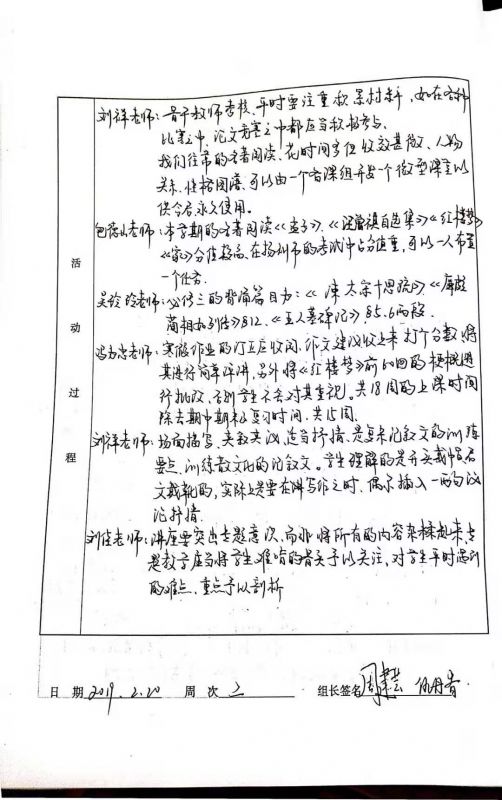 活动过程
刘祥老师:骨干教师考核,平时要注重积累材料,如在各种
比赛之中,论文竞赛之中都应当积极参与。
我们往常的名著阅读,花时间多但收效甚微,人物
关系,性格图谱,可以由一个备课组开发一个微型课程以
供今后永久使用。
老师:本学期的名著阅读《孟子》、《汪曾祺自选集》《红楼梦》
《家》分值较高,在扬州市的考试中占分值重,可以一人布置
一个任务。
老师:必修三的背诵篇目为:《谏太宗十思疏》《廉颇
蔺相如列传》P12、《五人墓碑记》P5.6两段
老师:寒假作业的订正应收阅,作文建议收上来打个分数,将
其进行简单评讲,另外将《红楼梦》前40回的梗概进
行批改,否则学生不会对其重视。共18周的上课时间
除去期中期末复习时间,共15周
刘祥老师:场面描写,夹叙夹议,适当抒情,是复杂记叙文的训练
要点,训练散文化的记叙文。学生理解的是开头戴帽后
文戴靴的,实际上是要在讲写作之时,偶尔插入一两句议
论抒情
刘佳老师:讲座要突出专题意识,而非将所有的内容杂糅起来,尤
是教学应当将学生难啃的骨头予以关注,对学生平时遇到
的难点、重点予以剖析
日 期 2019.2.20 周 次 二 组长签名